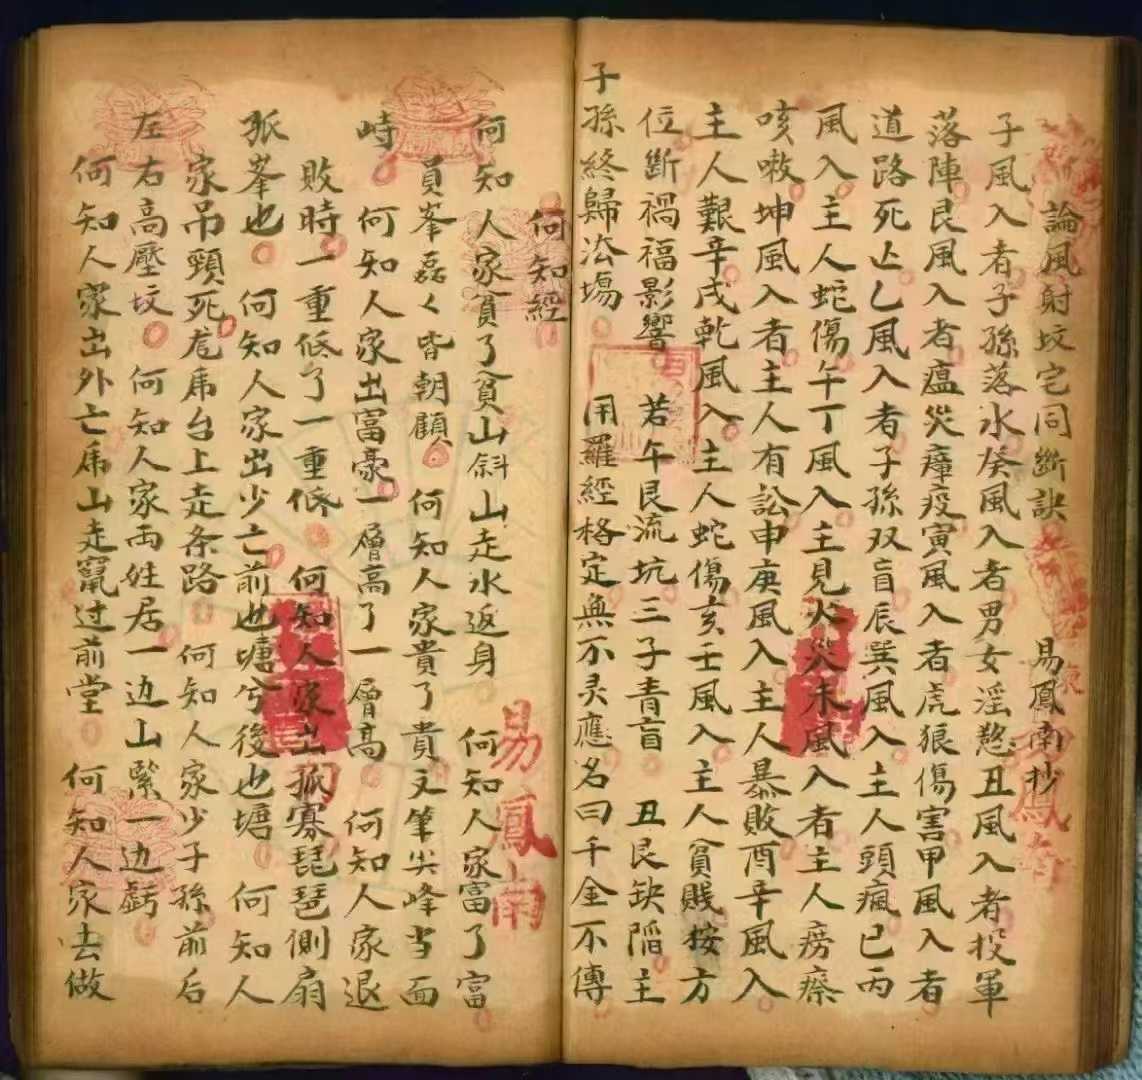 論風射坟宅同斷訣　易鳳南抄
子風入者子孫落水癸風入者男女淫慾丑風入者投軍
落陣艮風入者瘟災瘴疫寅風入者虎狼傷害甲風入者
道路死亾乙風入者子孫双盲辰巽風入主人頭瘋巳丙
風入主人蛇傷午丁風入主見火災未風入者主人癆瘵
咳嗽坤風入者主人有訟申庚風入主人暴敗酉辛風入
主人艱辛戌乾風入主人蛇傷亥壬風入主人貧賤按方
位斷禍福影響　若午艮流坑三子青盲　丑艮缺陷主
子孫終歸法場　用羅經格定無不灵應名曰千金不傳
何知經
何知人家貧了貧山斜山走水返身　何知人家富了富
員峯磊々皆朝顧　何知人家貴了貴文筆尖峰当面
峙　何知人家出富豪一層高了一層高　何知人家退
敗時一重低了一重低　何知人家出孤寡琵琶側扇
孤峯也　何知人家出少亡前也塘兮後也塘　何知人
家吊頸死 台上走条路　何知人家少子孫前后
左右高壓坟　何知人家両姓居一边山緊一边虧
何知人家出外亡 山走竄过前堂　何知人家去做
易鳳南